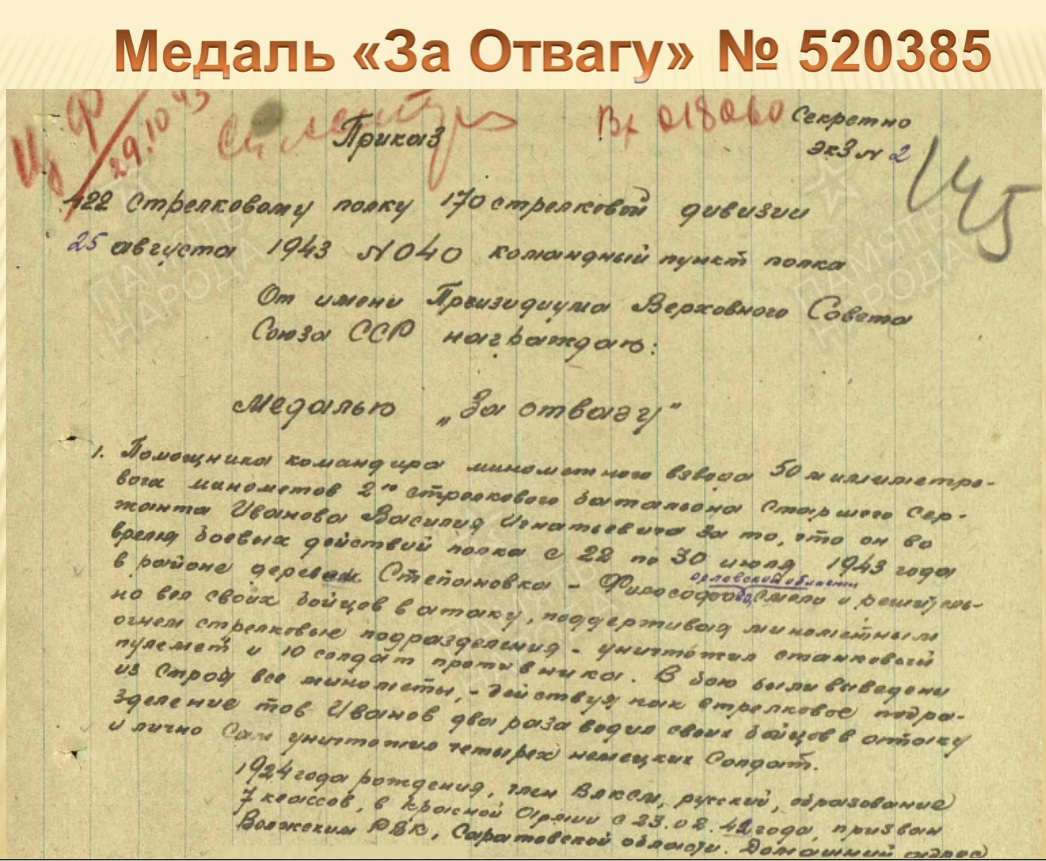 Медаль «За Отвагу» № 520385
29.10 43
Вх 018060
Секретно
экз N 2
145
Приказ
422 стрелковому полку 170 стрелковой дивизии
25 августа 1943 N 040 командный пункт полка
От имени Призидиума Верховного Совета
Союза ССР награждаю:
Медалью „За отвагу"
1. Помощника командира минометного взвода 50 миллиметро-
вого минометов 2го стрелкового батальона Старшего Сер-
жанта Иванова Василия Игнатьевича за то, что он во
время боевых действий полка с 22 по 30 июля 1943 года
орловской области
в районе деревень Степановка - Философово, смело и решитель-
но вел своих бойцов в атаку, поддерживая минометным
огнем стрелковые подразделения - уничтожил станковый
пулемет и 10 солдат противника. В бою были выведены
из строя все минометы, - действуя как стрелковое подра-
зделение тов Иванов два раза водил своих бойцов в атаку
и лично Сам уничтожил четырех немецких Солдат.
1924 года рождения, член ВЛКСМ, русский, образование
7 классов, в Красной Армии с 23.02.42 года, призван
Волжским РВК, Саратовской области. Домашний адрес
ПАМЯТЬ
НАРОДА
ПАМЯТЬ
НАРОДА
ПАМЯТЬ
НАРОДА